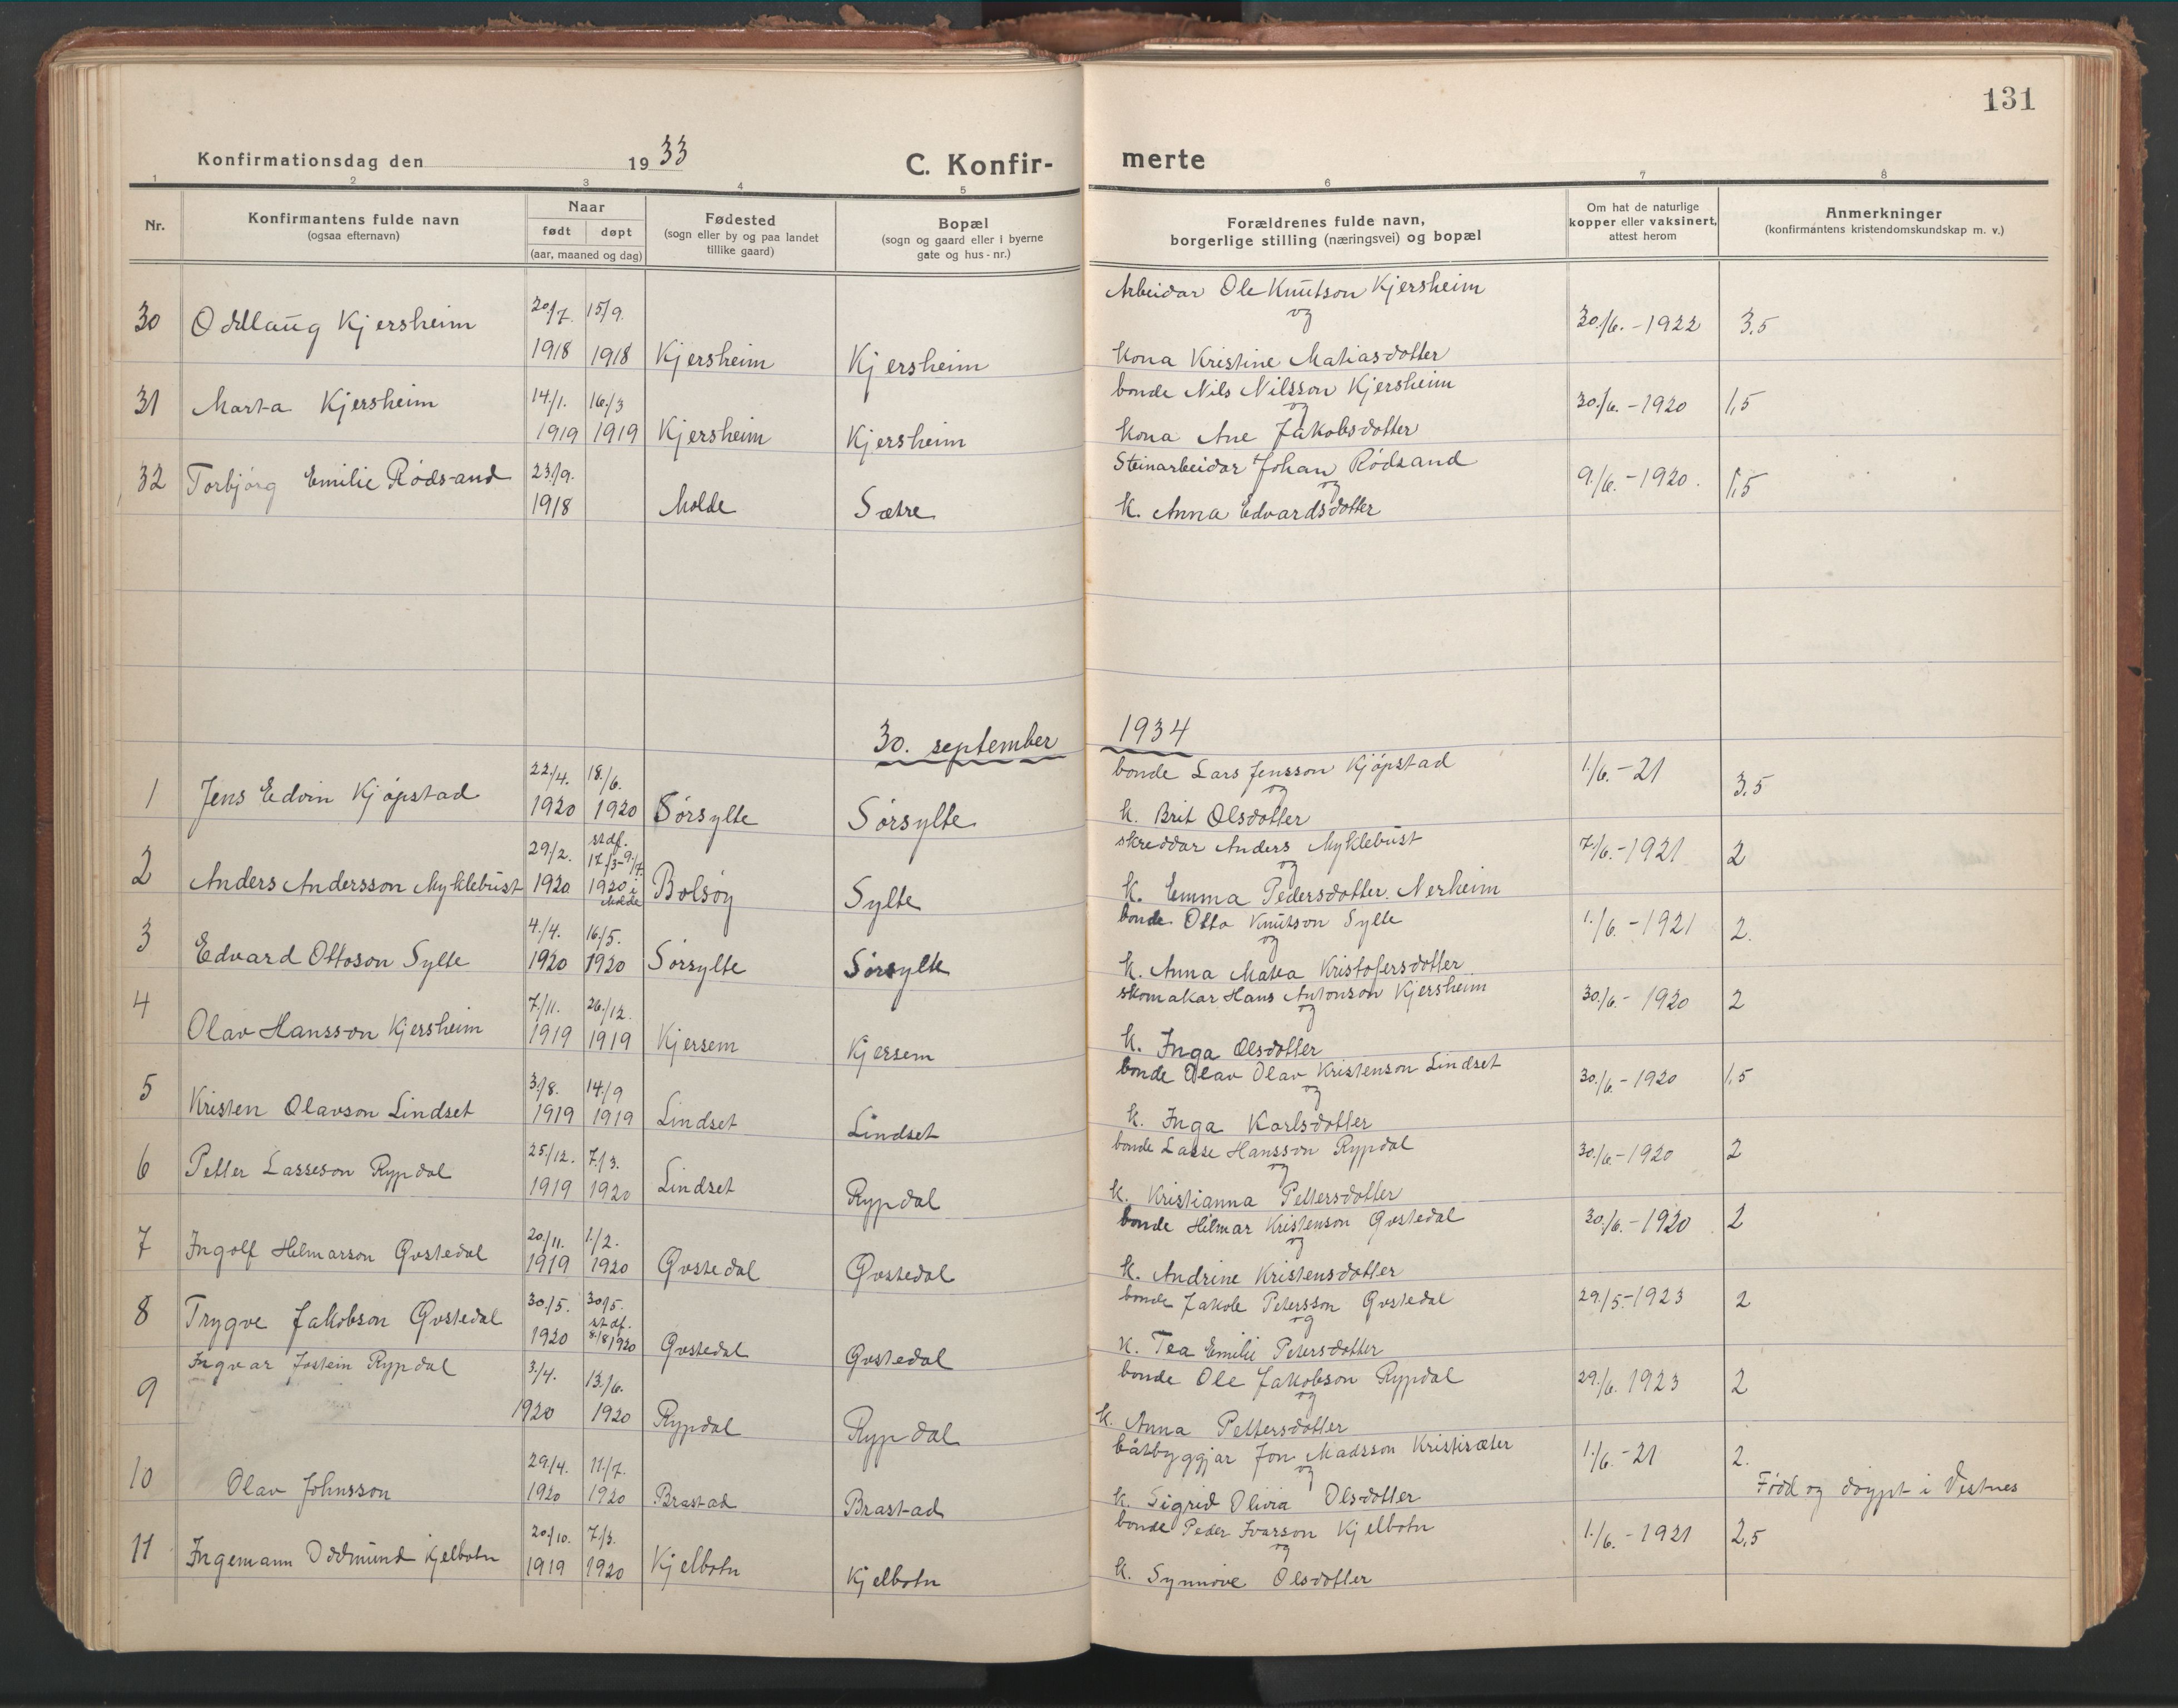 131
Konfirmationsdag den 1933 C. Konfirmerte
1 2 3 4 5 6 7 8
Nr.
Konfirmantens fulde navn
(ogsaa efternavn)
Naar
født døpt
(aar, maaned og dag)
Fødested
(sogn eller by og paa landet
tillike gaard)
Bopæl
(sogn og gaard eller i byerne
gate og hus-nr.)
Forældrenes fulde navn,
borgerlige stilling (næringsvei) og bopæl
Om hat de naturlige
kopper eller vaksinert,
attest herom
Anmerkninger
(konfirmantens kristendomskundskap m. v.)
30 Oddlaug Kjersheim 20/7. 1918 15/9. 1918 Kjersheim Kjersheim Arbeidar Ole Knutson Kjersheim
og
kona Kristine Matiasdotter 30./6.-1922 3,5
31 Marta Kjersheim 14/1. 1919 16./3 1919 Kjersheim Kjersheim bonde Nils Nilsson Kjersheim
og
kona Ane Jakobsdotter 30./6.-1920 1,5
32 Torbjørg Emilie Rødsand 23/9. 1918 Molde Sætre Steinarbeidar Johan Rødsand
og
k. Anna Edvardsdotter 9./6.-1920. 1,5
30. september 1934
1 Jens Edvin Kjøpstad 22/4. 1920 18./6. 1920 Sørsylte Sørsylte bonde Lars Jensson Kjøpstad
og
k. Brit Olsdotter 1./6.-21 3,5
2 Anders Andersson Myklebust 29/2. 1920 stdf. 17./3-9./7. 1920 i Molde Bolsøy Sylte skreddar Anders Myklebust
og
k. Emma Pedersdotter Nerheim 7./6.-1921 2
3 Edvard Ottoson Sylte 4./4. 1920 16./5. 1920 Sørsylte Sørsylte bonde Otto Knutson Sylte
og
k. Anna Matea Kristofersdotter 1./6.-1921 2.
4 Olav Hansson Kjersheim 7/11. 1919 26/12. 1919 Kjersem Kjersem skomakar Hans Antonson Kjersheim
og
k. Inga Olsdotter 30./6-1920 2
5 Kristen Olavson Lindset 3./8. 1919 14/9 1919 Lindset Lindset bonde Olav Olav Kristenson Lindset
og
k. Inga Karlsdotter 30./6-1920 1,5
6 Petter Lasseson Rypdal 25./12. 1919 7./3. 1920 Lindset Rypdal bonde Lasse Hansson Rypdal
og
k. Kristianna Pettersdotter 30./6-1920 2
7 Ingolf Helmarson Øvstedal 20./11. 1919 1./2. 1920 Øvstedal Øvstedal bonde Hilmar Kristenson Øvstedal
og
k. Andrine Kristensdotter 30./6.-1920 2
8 Trygve Jakobson Øvstedal 30./5. 1920 30/5. st.df. 8./8 1920 Øvstedal Øvstedal bonde Jakob Petersson Øvstedal
og
k. Tea Emilie Petersdotter 29./5-1923 2
9 Ingvar Jostein Rypdal 3./4. 1920 13./6. 1920 Rypdal Rypdal bonde Ole Jakobson Rypdal
og
k. Anna Pettersdotter 29./6. 1923 2
10 Olav Johnsson 29./4. 1920 11./7. 1920 Brastad Brastad båtbyggjar Jon Madsson Kristisæter
og
k. Sigrid Olivia Olsdotter 1./6.-21 2. Fødd og døypt i Vestnes
11 Ingemann Oddmund Kjelbotn 20./10. 1919 7./3. 1920 Kjelbotn Kjelbotn bonde Peder Ivarson Kjelbotn
og
k. Synnøve Olsdotter 1./6.-1921 2,5